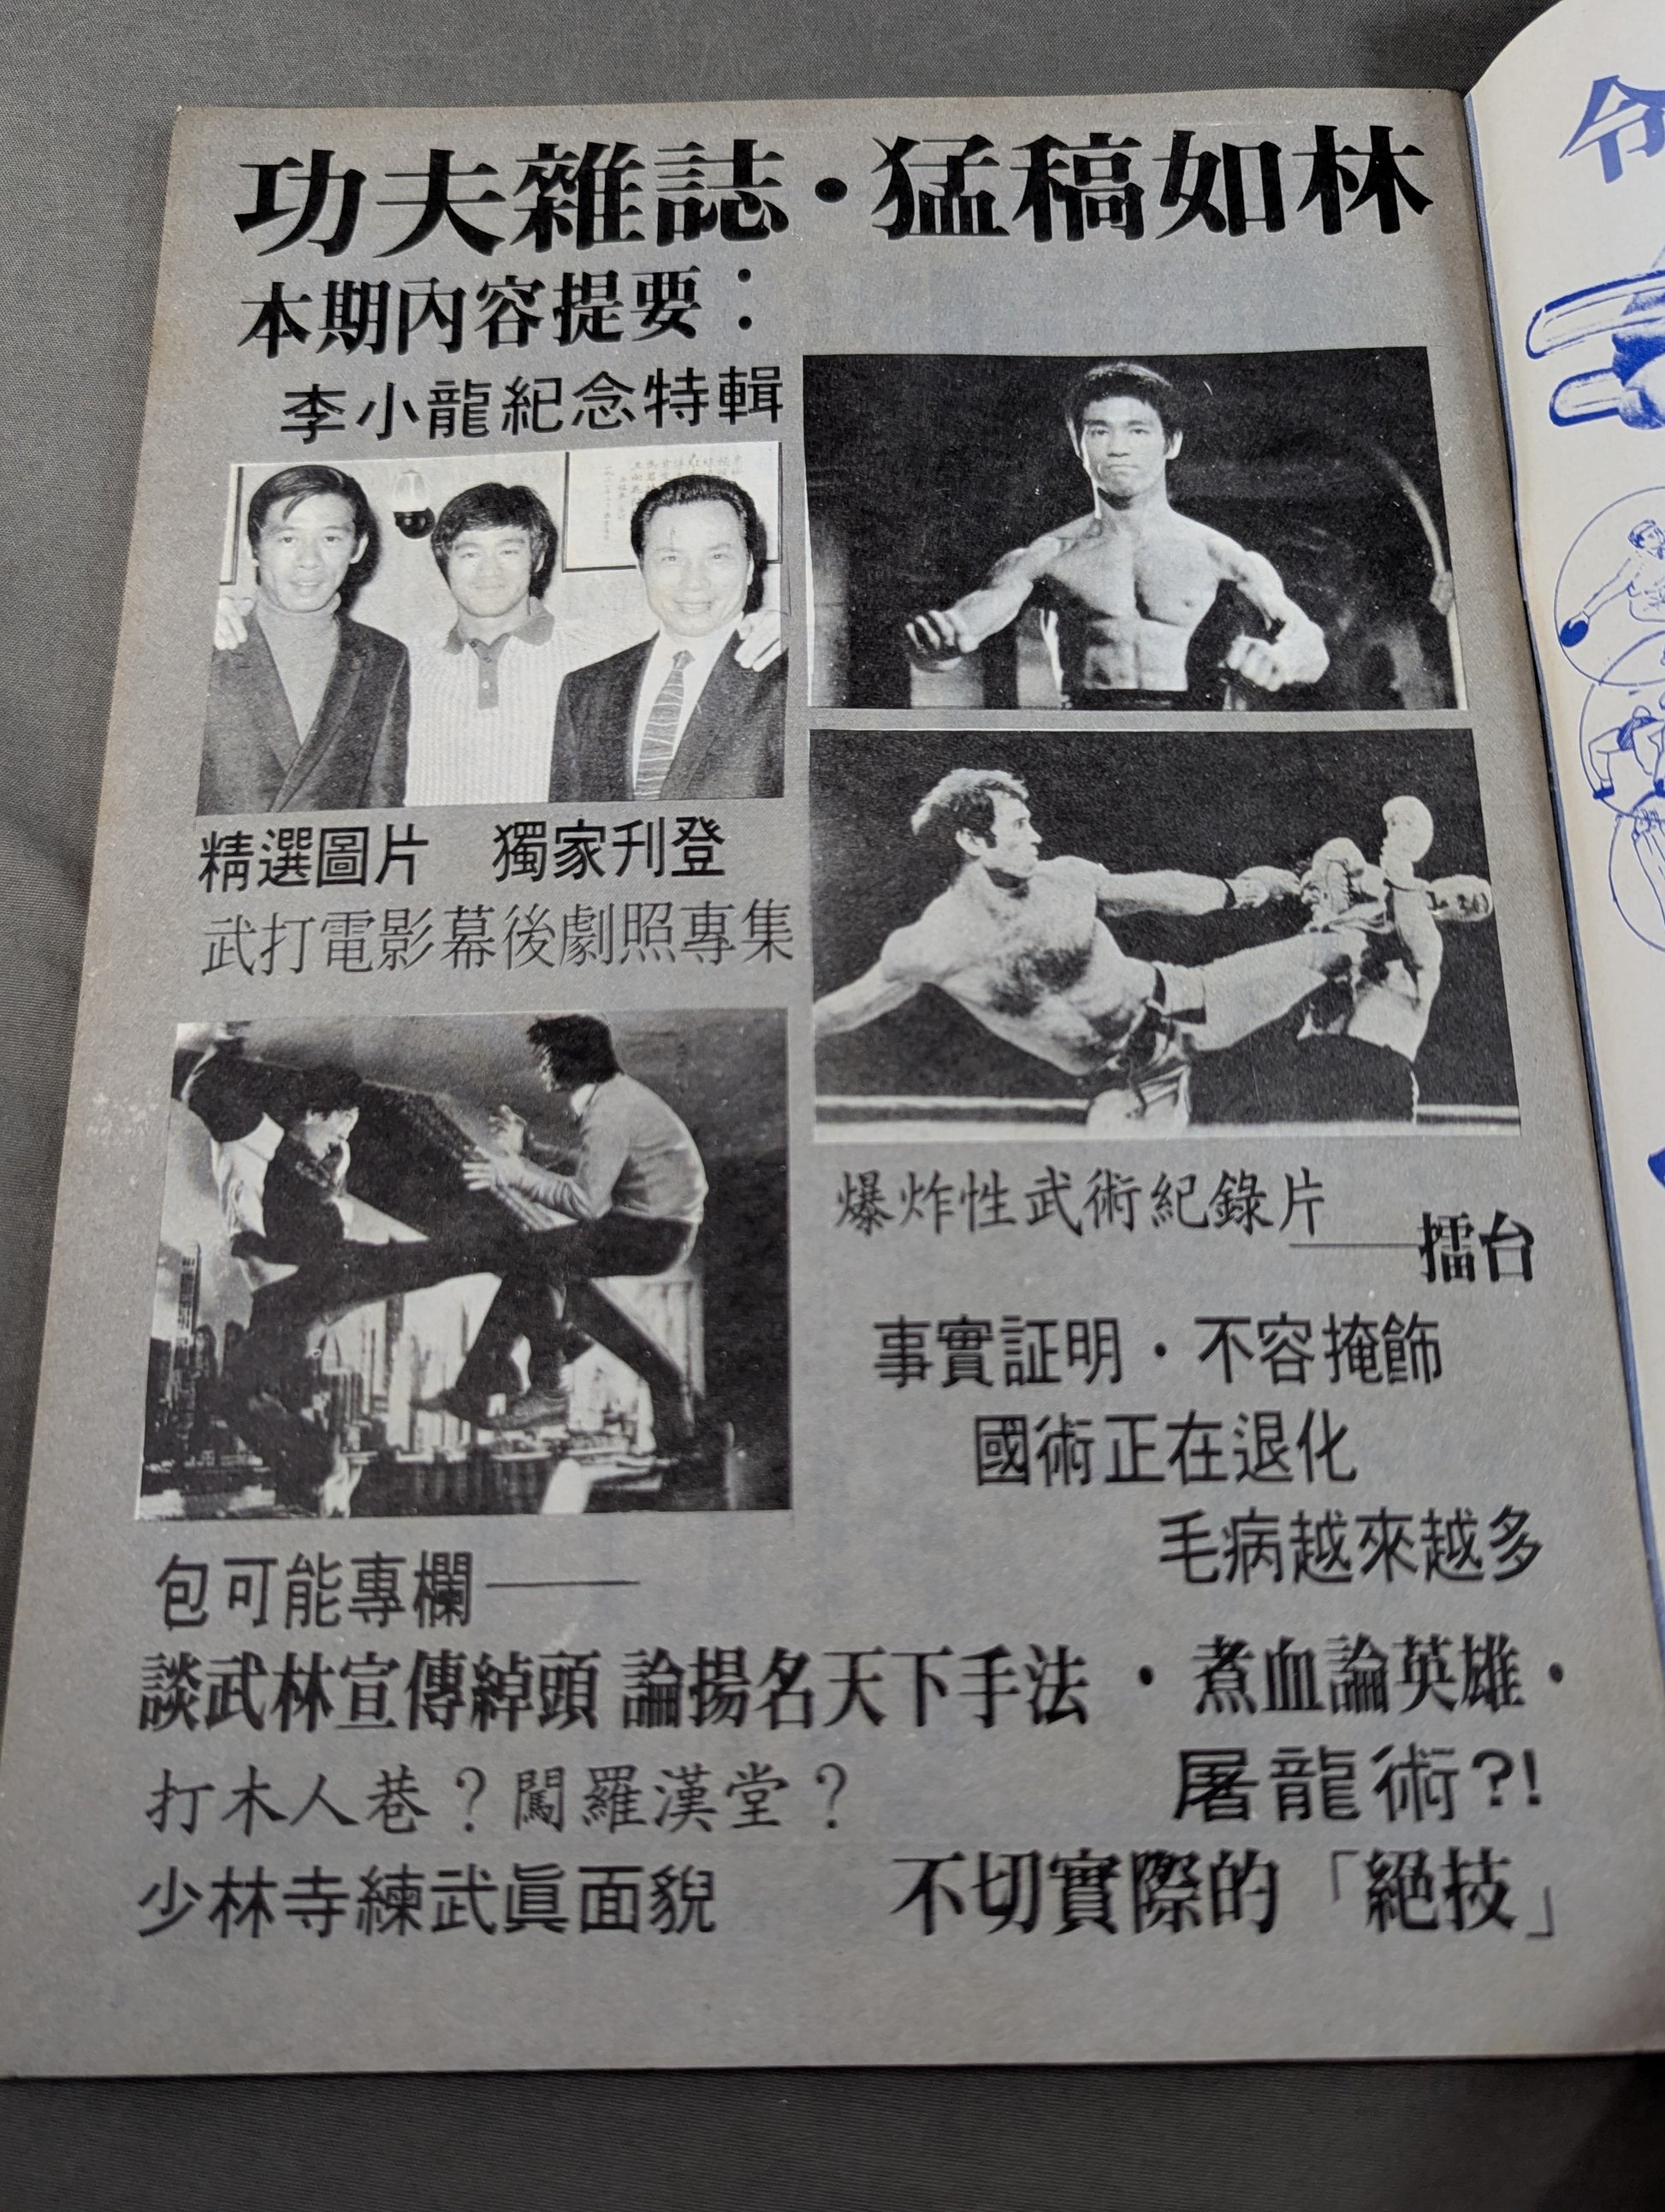 功夫雜誌・猛稿如林
本期內容提要：
李小龍紀念特輯
精選圖片　獨家刋登
武打電影幕後劇照專集
爆炸性武術紀錄片
——擂台
事實証明・不容掩飾
國術正在退化
毛病越來越多
包可能專欄——
談武林宣傳綽頭 論揚名天下手法
・煮血論英雄・
打木人巷？闖羅漢堂？
屠龍術?!
少林寺練武眞面貌
不切實際的「絕技」
令